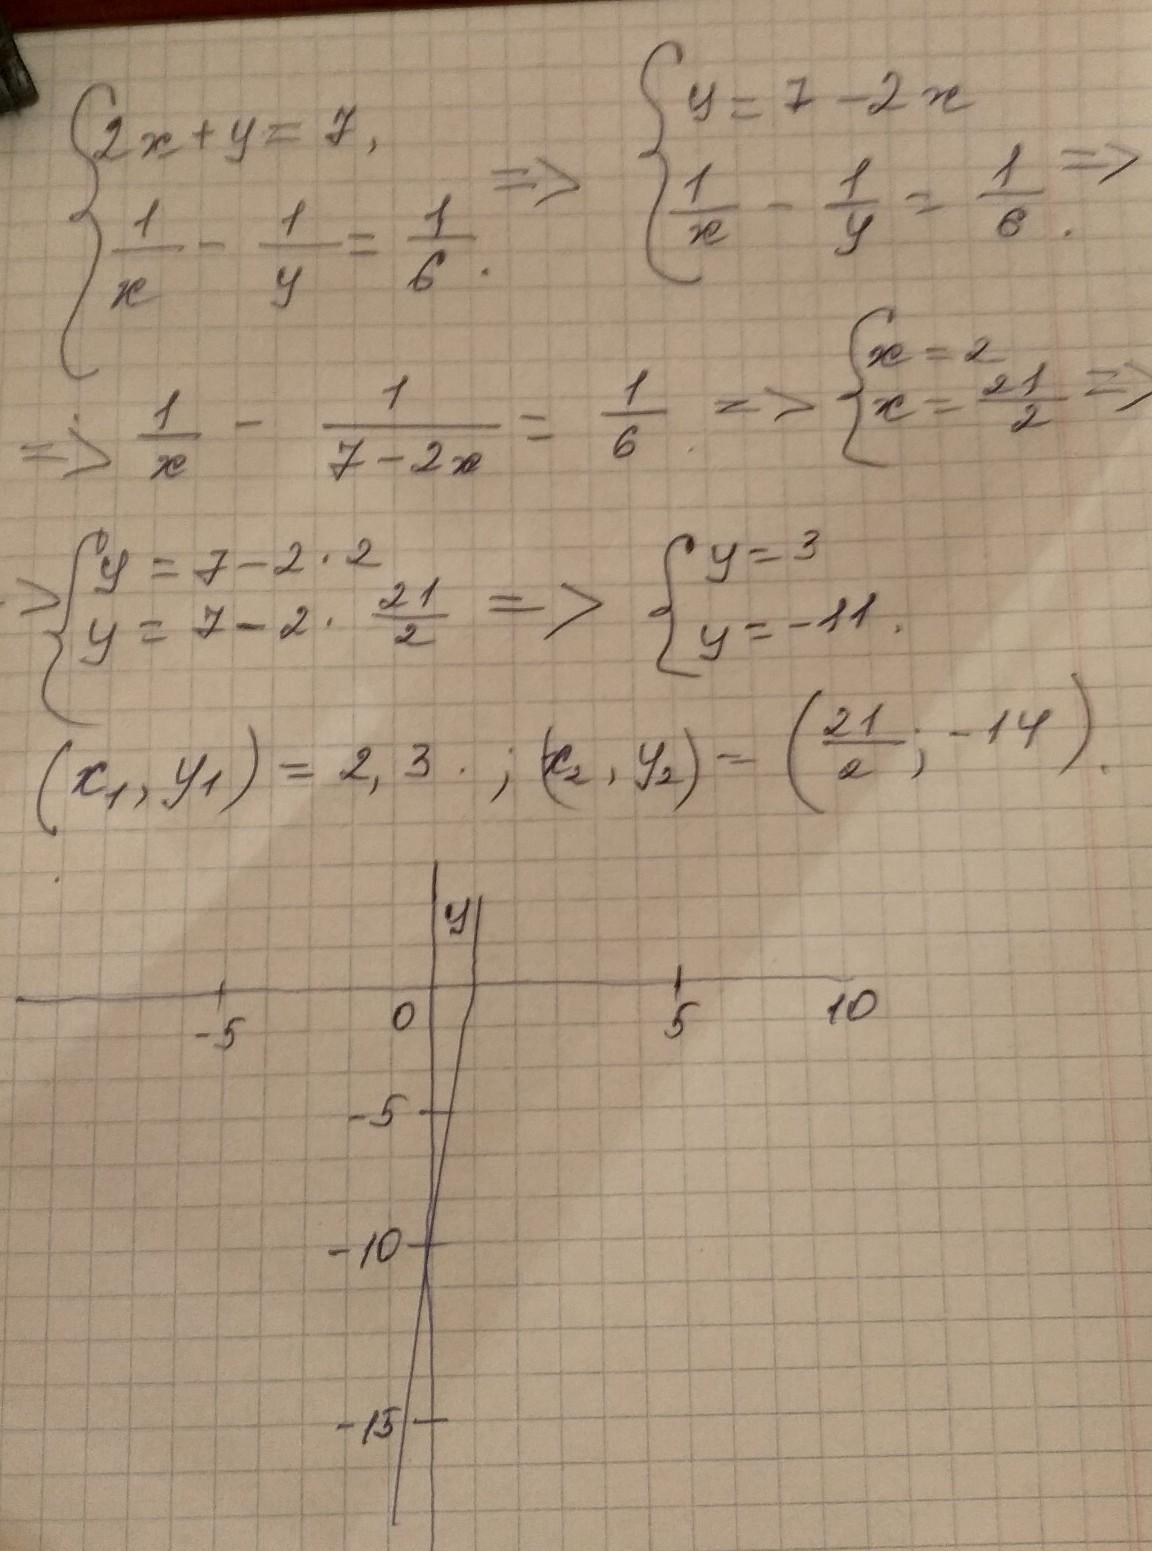 { 2x + y = 7, 1/x - 1/y = 1/6. => { y = 7 - 2x 1/x - 1/y = 1/6. =>
=> 1/x - 1/(7 - 2x) = 1/6. => { x = 2 x = 21/2 =>
=> { y = 7 - 2 · 2 y = 7 - 2 · 21/2 => { y = 3 y = -11.
(x₁, y₁) = 2, 3 . ; (x₂, y₂) = (21/2; -14).
y
-5 0 5 10
-5
-10
-15